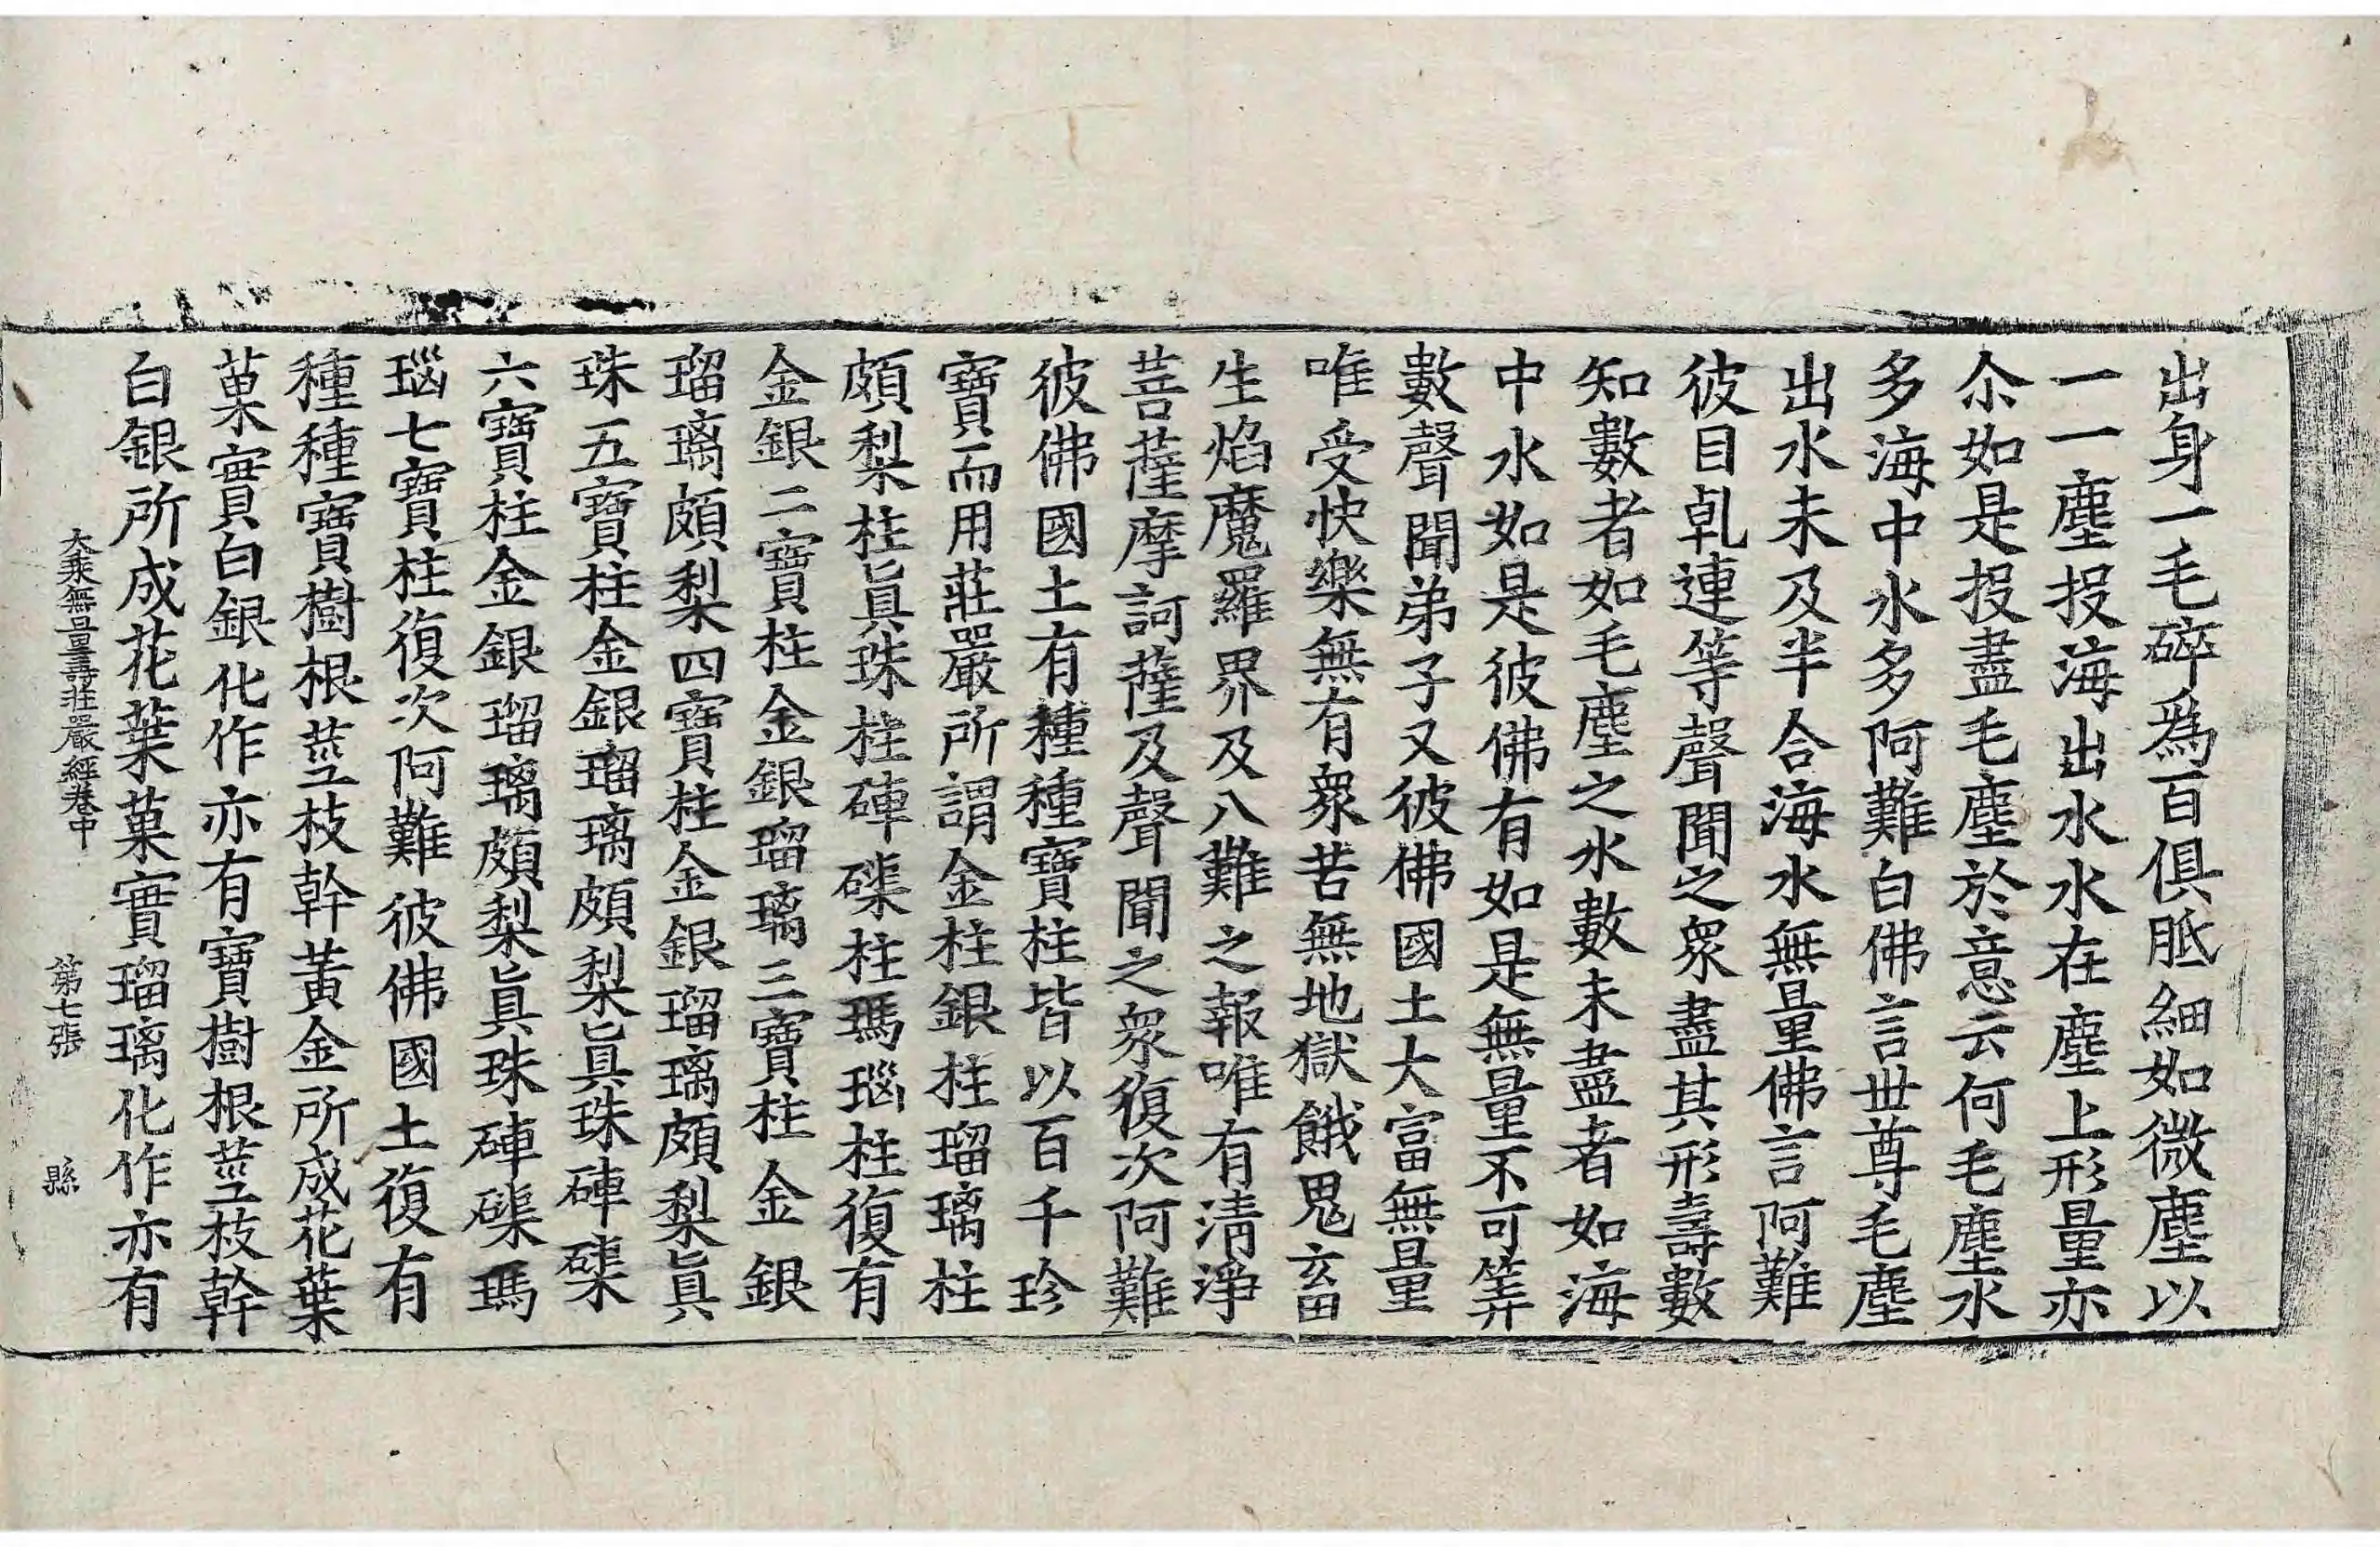 出身一毛碎爲百俱胝細如微塵以
一一塵投海出水水在塵上形量亦
尒如是投盡毛塵於意云何毛塵水
多海中水多阿難白佛言世尊毛塵
出水未及半合海水無量佛言阿難
彼目乹連等聲聞之衆盡其形壽數
知數者如毛塵之水數未盡者如海
中水如是彼佛有如是無量不可筭
數聲聞弟子又彼佛國土大富無量
唯受快樂無有衆苦無地獄餓鬼畜
生焰魔羅界及八難之報唯有淸淨
菩薩摩訶薩及聲聞之衆復次阿難
彼佛國土有種種寶柱皆以百千珍
寶而用莊嚴所謂金柱銀柱瑠璃柱
頗梨柱眞珠柱硨磲柱瑪瑙柱復有
金銀二寶柱金銀瑠璃三寶柱金銀
瑠璃頗梨四寶柱金銀瑠璃頗梨眞
珠五寶柱金銀瑠璃頗梨眞珠硨磲
六寶柱金銀瑠璃頗梨眞珠硨磲瑪
瑙七寶柱復次阿難彼佛國土復有
種種寶樹根莖枝幹黃金所成花葉
菓實白銀化作亦有寶樹根莖枝幹
白銀所成花葉菓實瑠璃化作亦有
大乘無量壽莊嚴經卷中 第七張 縣